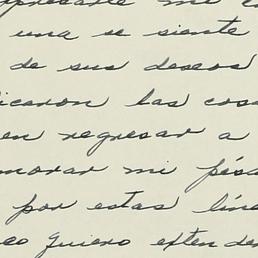 una se siente
de sus deseos
icaron las cos
en regresar a
morar mi pés
por estas líne
eo Quiero exten de